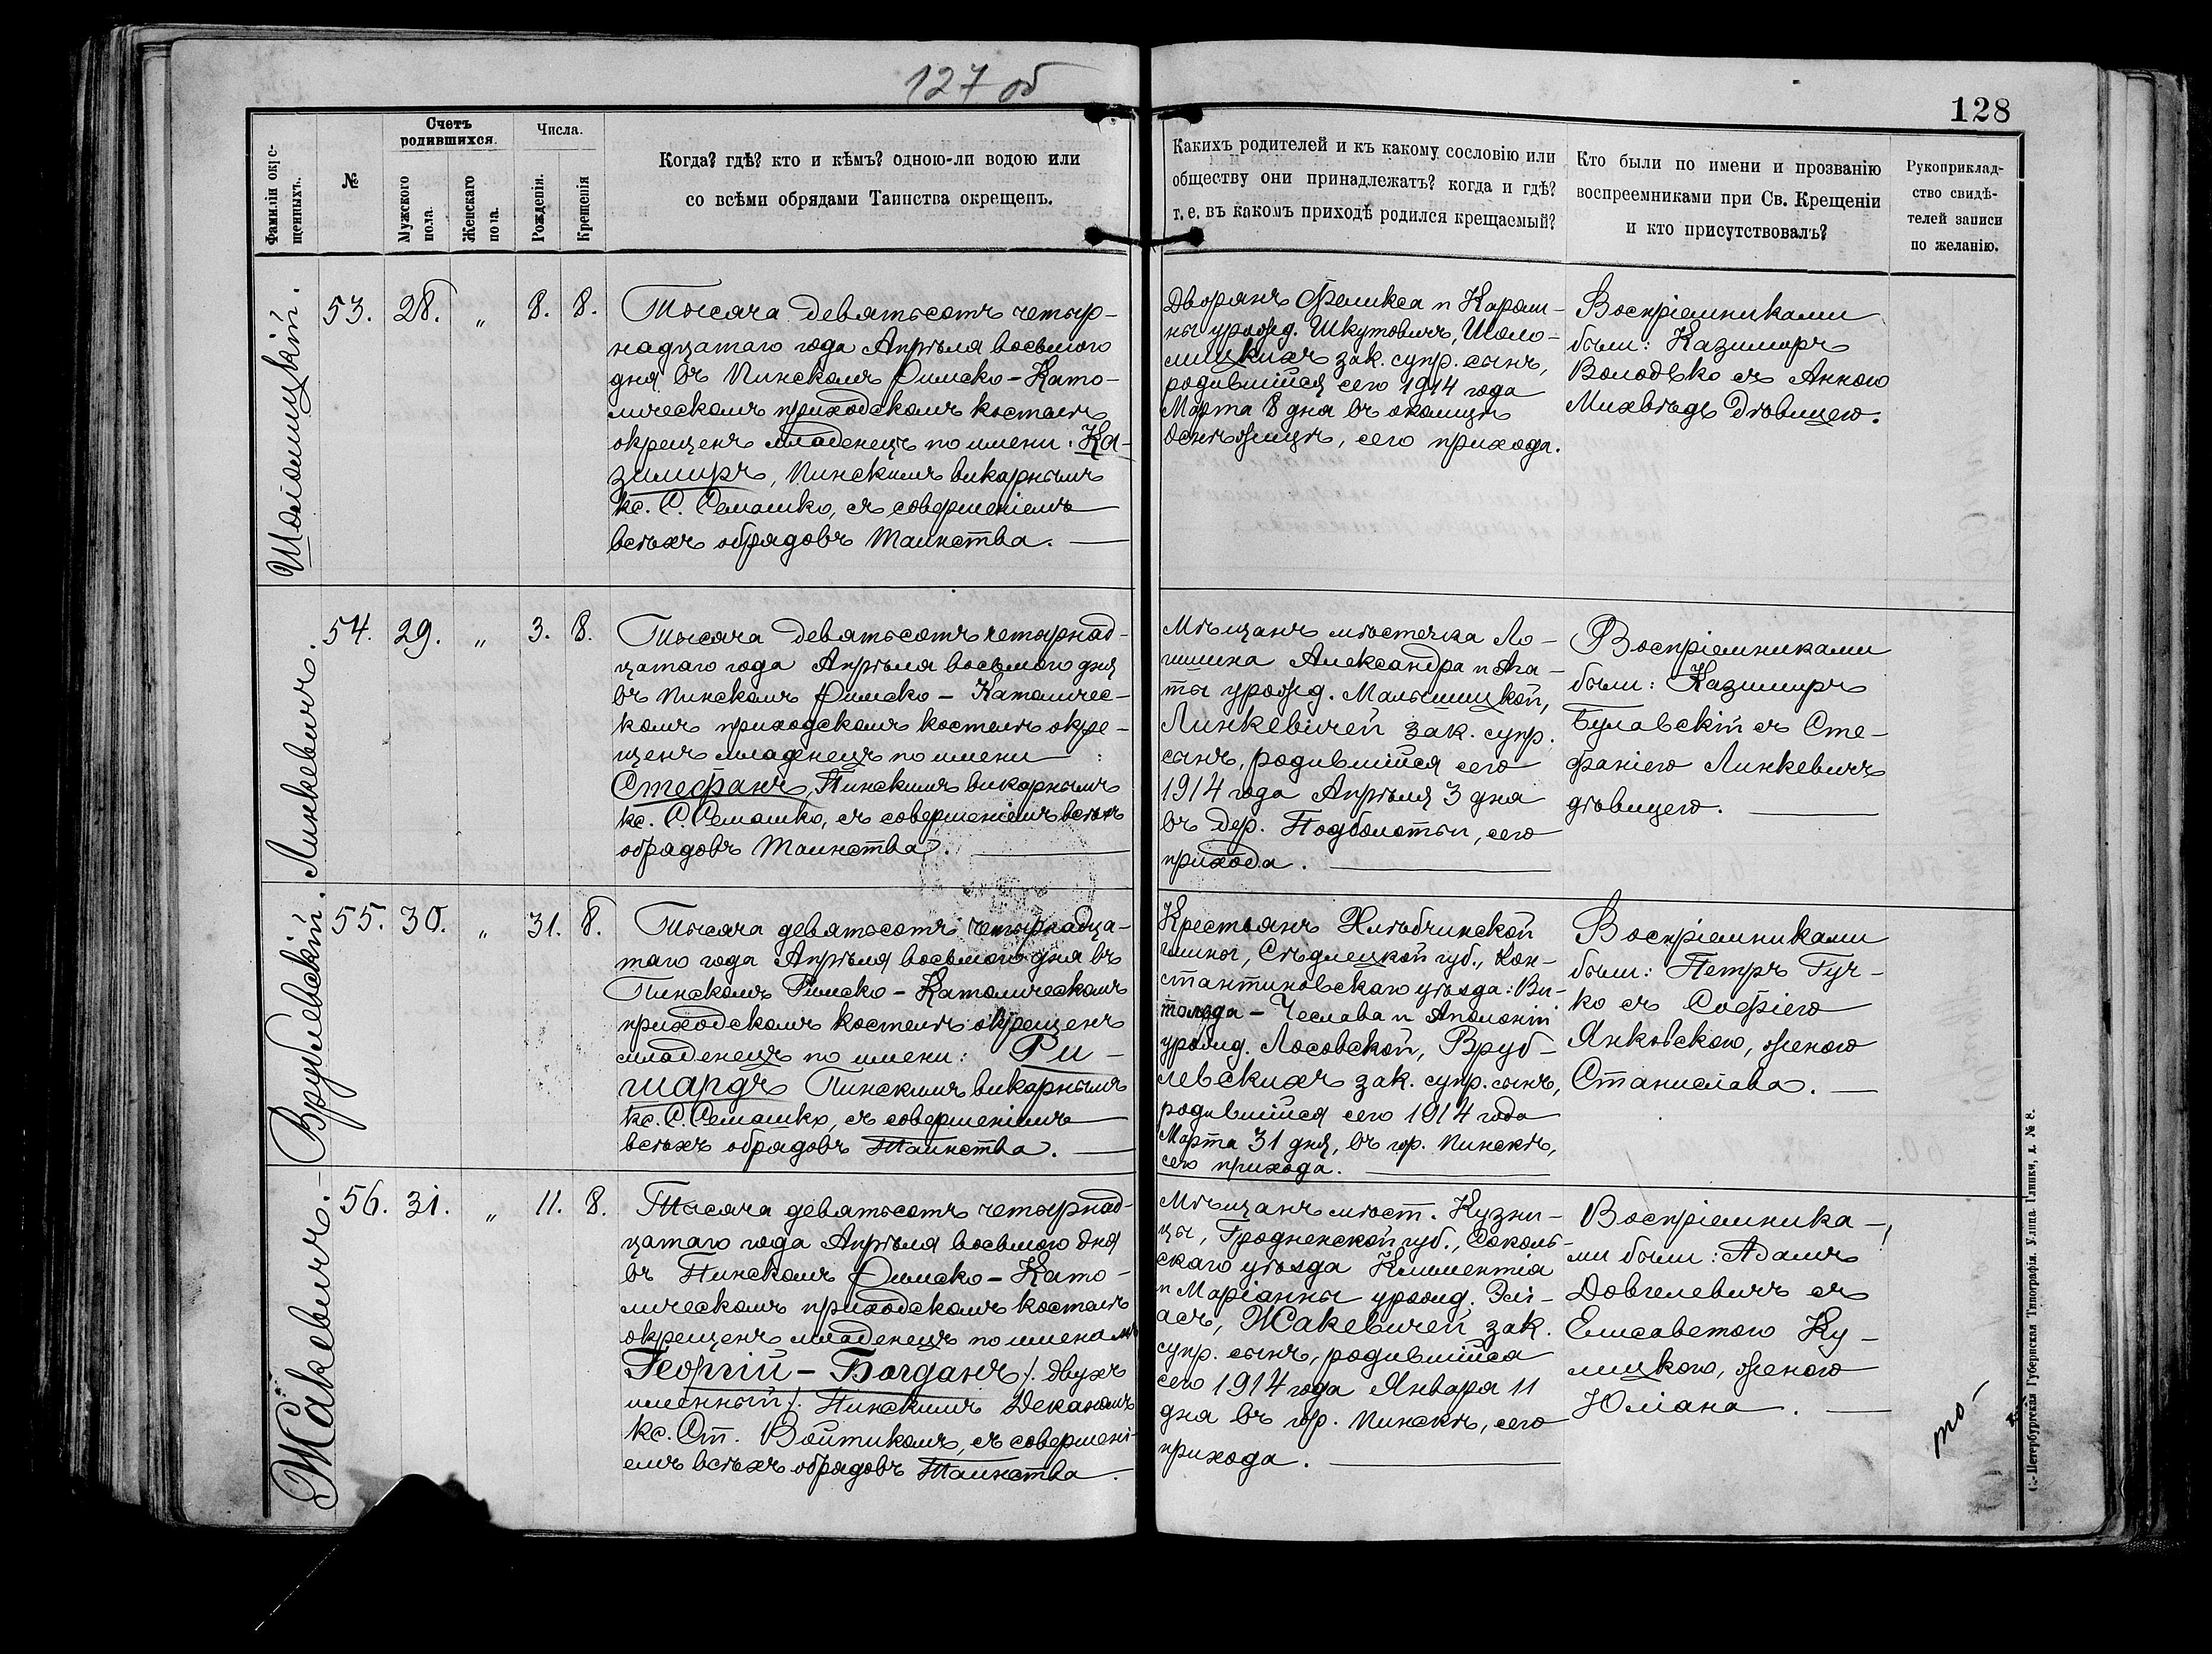 127 об
128
Фамиліи окре-
щенныхъ.
№
Счетъ
родившихся.
Мужского
пола.
Женскаго
пола.
Числа.
Рожденія.
Крещенія
Когда? гдѣ? кто и кѣмъ? одною-ли водою или
со всѣми обрядами Таинства окрещенъ.
Какихъ родителей и къ какому сословію или
обществу они принадлежатъ? когда и гдѣ?
т. е. въ какомъ приходѣ родился крещаемый?
Кто были по имени и прозванію
воспреемниками при Св. Крещеніи
и кто присутствовалъ?
Рукоприклад-
ство свидѣ-
телей записи
по желанію.
Шоломицкій.
53. 28. „ 8. 8.
Тысяча девятьсотъ четыр-
надцатаго года Апрѣля восьмого
дня въ Пинскомъ Римско-Като-
лическомъ приходскомъ костелѣ
окрещенъ младенецъ по имени: Ка-
зимиръ, Пинскимъ викарнымъ
кс. С. Семашко, съ совершеніемъ
всѣхъ обрядовъ Таинства. —
Дворянъ Феликса и Кароли-
ны урожд. Шкутовичъ, Шоло-
мицкихъ зак. супр. сынъ,
родившійся сего 1914 года
Марта 8 дня въ околицѣ
Оснѣжицѣ, сего прихода.
Воспріемниками
были: Казимиръ
Володько съ Анною
Михвѣдъ дѣвицею.
Линкевичъ.
54. 29. „ 3. 8.
Тысяча девятьсотъ четырнад-
цатаго года Апрѣля восьмого дня
въ Пинскомъ Римско-Католичес-
комъ приходскомъ костелѣ окре-
щенъ младенецъ по имени :
Стефанъ, Пинскимъ викарнымъ
кс. С. Семашко, съ совершеніемъ всѣхъ
обрядовъ Таинства. —
Мѣщанъ мѣстечка Ло-
гишина Александра и Ага-
ты урожд. Малышицкой,
Линкевичей зак. супр.
сынъ, родившійся сего
1914 года Апрѣля 3 дня
въ дер. Подболотьи, сего
прихода. —
Воспріемниками
были: Казимиръ
Булавскій съ Сте-
фаніею Линкевичъ
дѣвицею. —
Врублевскій.
55. 30. „ 31. 8.
Тысяча девятьсотъ четырнадца-
таго года Апрѣля восьмого дня въ
Пинскомъ Римско-Католическомъ
приходскомъ костелѣ окрещенъ
младенецъ по имени: Ри-
шардъ Пинскимъ викарнымъ
кс. С. Семашко, съ совершеніемъ
всѣхъ обрядовъ Таинства. —
Крестьянъ Хлѣбчинской
гмины, Сѣдлецкой губ., Кон-
стантиновскаго уѣзда: Ви-
тольда-Чеслава и Аполоніи
урожд. Лосовской, Вруб-
левскихъ зак. супр. сынъ,
родившійся сего 1914 года
Марта 31 дня, въ гор. Пинскѣ,
сего прихода. —
Воспріемниками
были: Петръ Гуч-
ко съ Софіею
Янковскою, женою
Станислава. —
Жакевичъ. —
56. 31. „ 11. 8.
Тысяча девятьсотъ четырнад-
цатаго года Апрѣля восьмого дня
въ Пинскомъ Римско-Като-
лическомъ приходскомъ костелѣ
окрещенъ младенецъ по именамъ
Георгій-Богданъ /: двухъ
именный :/ Пинскимъ Деканомъ
кс. Ст. Войтикомъ, съ совершені-
емъ всѣхъ обрядовъ Таинства.
Мѣщанъ мѣст. Кузни-
цы, Гродненской губ., Соколь-
скаго уѣзда Климентія
и Маріанны урожд. Элі-
асъ, Жакевичей зак.
супр. сынъ, родившійся
сего 1914 года Января 11
дня въ гор. Пинскѣ, сего
прихода. —
Воспріемника-
ми были: Адамъ
Довгелевичъ съ
Елисаветою Ку-
лицкою, женою
Юліана. —
то-
С.-Петербургская Губернская Типографія. Улица Глинки, д. № 8.